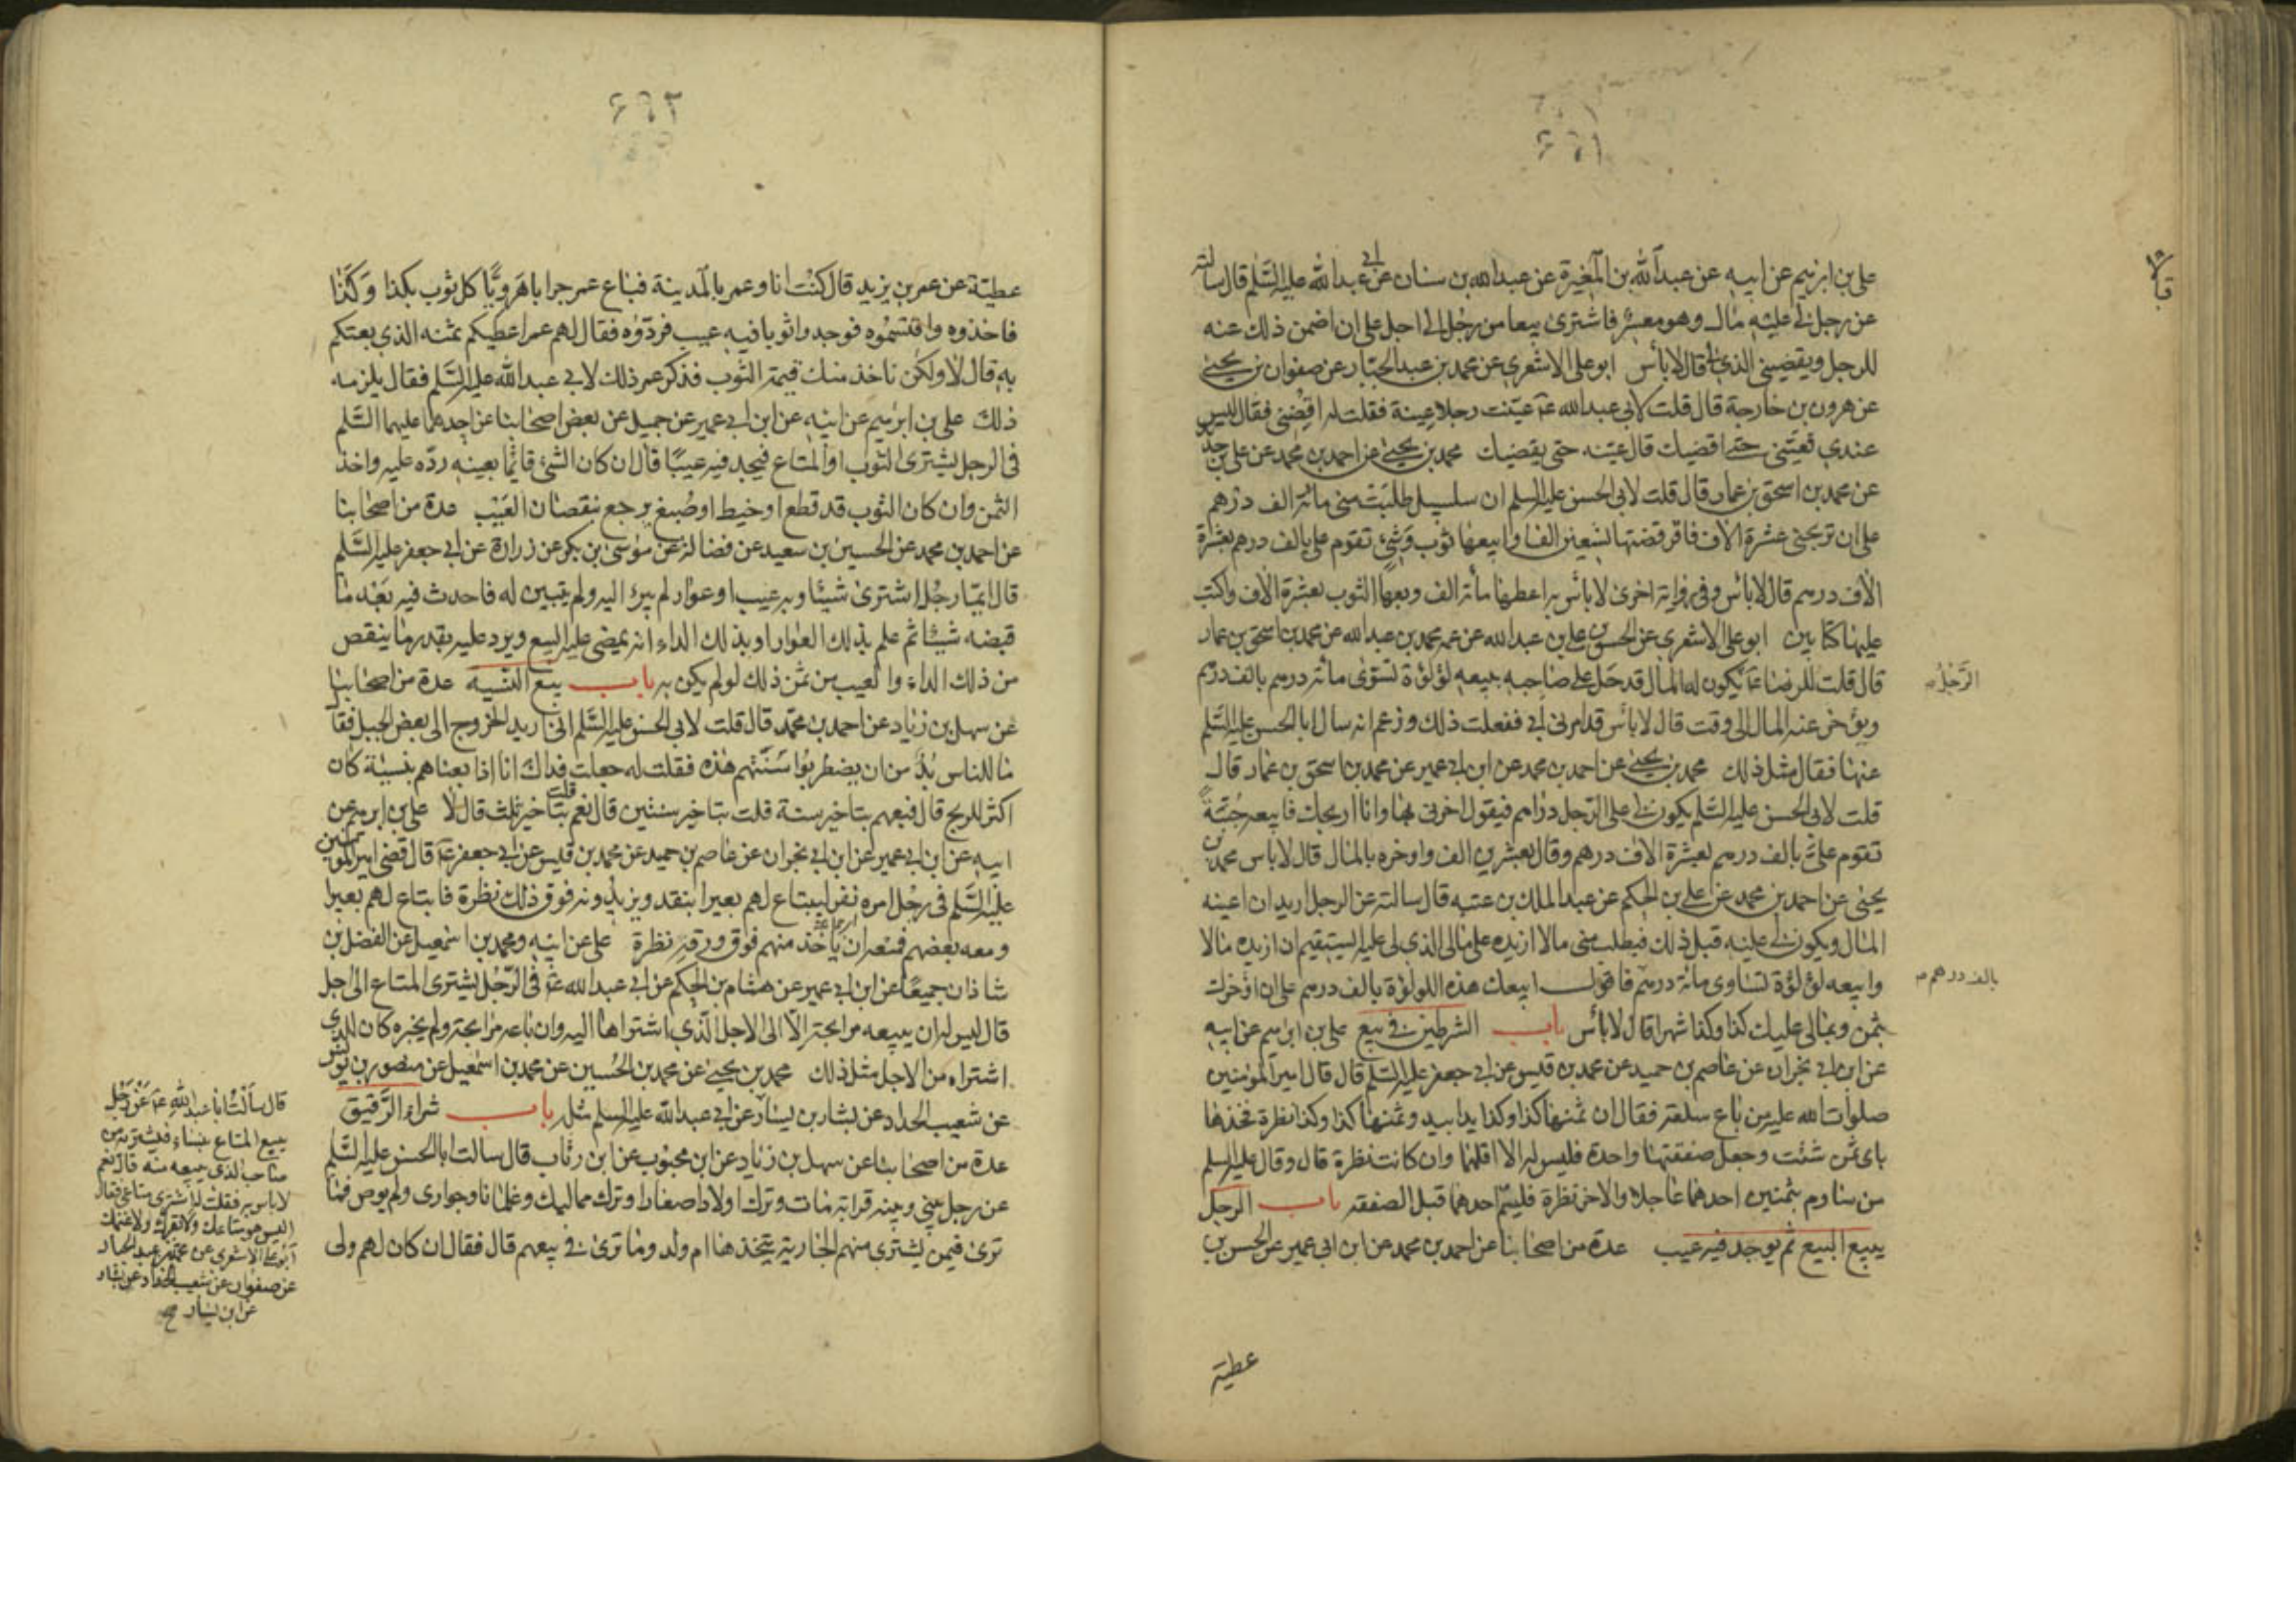 ٤٦١
علي بن ابرهيم عن ابيه عن عبد الله بن المغيرة عن عبد الله بن سنان عن ابي عبد الله عليه السلم قال سالته
عن رجل لي عليه مال وهو معسر فاشترى بيعا من رجل الى اجل على ان اضمن ذلك عنه
للرجل ويقضيني الذي لي قال لا بأس ابو علي الاشعري عن محمد بن عبد الجبار عن صفوان بن يحيى
عن هرون بن خارجة قال قلت لابي عبد الله عم عينت رجلا عينة فقلت له اقضني فقال ليس
عندي تعينني حتى اقضيك قال عينه حتى يقضيك محمد بن يحيى عن احمد بن محمد عن علي بن حديد
عن محمد بن اسحق بن عمار قال قلت لابي الحسن عليه السلم ان سلسبيل طلبت مني مائة الف درهم
على ان تربحني عشرة الاف فاقرضتها تسعين الفا وابيعها ثوب وشي تقوم علي بالف درهم بعشرة
الاف درهم قال لا بأس وفي رواية اخرى لا بأس به اعطها مائة الف وبعها الثوب بعشرة الاف واكتب
عليها كتابين ابو علي الاشعري عن الحسن بن علي بن عبد الله عن عمه محمد بن عبد الله عن محمد بن اسحق بن عمار
قال قلت للرضا عم يكون له المال قد حل على صاحبه يبيعه لؤلؤة تسوى مائة درهم بالف درهم
الرجل
ويؤخر عنه المال الى وقت قال لا بأس قد امرني ابي ففعلت ذلك وزعم انه سال ابا الحسن عليه السلم
عنها فقال مثل ذلك محمد بن يحيى عن احمد بن محمد عن ابن ابي عمير عن محمد بن اسحق بن عمار قال
قلت لابي الحسن عليه السلم يكون لي على الرجل دراهم فيقول اخرني بها وانا اربحك فابيعه جبة
تقوم علي بالف درهم بعشرة الاف درهم وقال بعشرين الف واوخره بالمال قال لا باس محمد بن
يحيى عن احمد بن محمد عن علي بن الحكم عن عبد الملك بن عتبه قال سالته عن الرجل اريد ان اعينه
المال ويكون لي عليه قبل ذلك فيطلب مني مالا ازيده على مالي الذي لي عليه ايستقيم ان ازيده مالا
وابيعه لؤلؤة تساوى مائة درهم فاقول ابيعك هذه اللؤلؤة بالف درهم على ان اؤخرك
بالف درهم
بثمن وبمالي عليك كذا وكذا شهرا قال لا بأس باب الشرطين في بيع علي بن ابرهيم عن ابيه
عن ابن ابي نجران عن عاصم بن حميد عن محمد بن قيس عن ابي جعفر عليه السلم قال قال امير المؤمنين
صلوات الله عليه من باع سلعة فقال ان ثمنها كذا وكذا يدا بيد وثمنها كذا وكذا نظرة فخذها
باى ثمن شئت وجعل صفقتها واحدة فليس له الا اقلهما وان كانت نظرة قال وقال عليه السلم
من ساوم بثمنين احدهما عاجلا والاخر نظرة فليسم احدهما قبل الصفقة باب الرجل
يبيع البيع ثم يوجد فيه عيب عدة من اصحابنا عن احمد بن محمد عن ابن ابي عمير عن الحسن بن
عطية
٤٦٢
عطية عن عمر بن يزيد قال كنت انا وعمر بالمدينة فباع عمر جرابا هرويا كل ثوب بكذا وكذا
فاخذوه واقتسموه فوجدوا ثوبا فيه عيب فردوه فقال لهم عمر اعطيكم ثمنه الذي بعتكم
به قال لا ولكن ناخذ منك قيمة الثوب فذكر عمر ذلك لابي عبد الله عليه السلم فقال يلزمه
ذلك علي بن ابرهيم عن ابيه عن ابن ابي عمير عن جميل عن بعض اصحابنا عن احدهما عليهما السلم
في الرجل يشترى الثوب او المتاع فيجد فيه عيبا قال ان كان الشئ قائما بعينه رده عليه واخذ
الثمن وان كان الثوب قد قطع او خيط او صبغ يرجع بنقصان العيب عدة من اصحابنا
عن احمد بن محمد عن الحسين بن سعيد عن فضالة عن موسى بن بكر عن زرارة عن ابي جعفر عليه السلم
قال ايما رجل اشترى شيئا وبه عيب او عوار لم يبرء اليه ولم يتبين له فاحدث فيه بعد ما
قبضه شيئا ثم علم بذلك العوار او بذلك الداء انه يمضى عليه البيع ويرد عليه بقدر ما ينقص
من ذلك الداء والعيب من ثمن ذلك لو لم يكن به باب بيع النسية عدة من اصحابنا
عن سهل بن زياد عن احمد بن محمد قال قلت لابي الحسن عليه السلم اني اريد الخروج الى بعض الجبل فقال
ما للناس بد من ان يضطربوا سنتهم هذه فقلت له جعلت فداك انا اذا بعناهم بنسيئة كان
اكثر للربح قال فبعهم بتاخير سنة قلت بتاخير سنتين قال نعم قلت بتاخير ثلث قال لا علي بن ابرهيم عن
ابيه عن ابن ابي عمير عن ابن ابي نجران عن عاصم بن حميد عن محمد بن قيس عن ابي جعفر عم قال قضى امير المومنين
عليه السلم في رجل امره نفر ليبتاع لهم بعيرا بنقد ويزيدونه فوق ذلك نظرة فابتاع لهم بعيرا
ومعه بعضهم فمنعه ان ياخذ منهم فوق ورقه نظرة علي عن ابيه ومحمد بن اسمعيل عن الفضل بن
شاذان جميعا عن ابن ابي عمير عن هشام بن الحكم عن ابي عبد الله عم في الرجل يشترى المتاع الى اجل
قال ليس له ان يبيعه مرابحة الا الى الاجل الذي اشتراه اليه وان باعه مرابحة ولم يخبره كان للذى
اشتراه من الاجل مثل ذلك محمد بن يحيى عن محمد بن الحسين عن محمد بن اسمعيل عن منصور بن يونس
عن شعيب الحداد عن بشار بن يسار عن ابي عبد الله عليه السلم مثله باب شراء الرقيق
عدة من اصحابنا عن سهل بن زياد عن ابن محبوب عن ابن رئاب قال سالت ابا الحسن عليه السلم
عن رجل بيني وبينه قرابة مات وترك اولادا صغارا وترك مماليك وغلمانا وجوارى ولم يوص فما
ترى فيمن يشترى منهم الجارية يتخذها ام ولد وما ترى في بيعهم قال فقال ان كان لهم ولى
قال سألت ابا عبد الله عم عن رجل
يبيع المتاع بنساء فيشتريه من
صاحب الذي يبيعه منه قال نعم
لا باس به فقلت له اشترى متاعي فقال
ليس هو متاعك ولا بقرك ولا غنمك
ابو علي الاشعري عن محمد بن عبد الجبار
عن صفوان عن شعيب الحداد عن بشار
عن ابن يسار